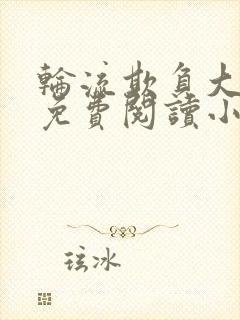 輪流欺負大
免費閱讀小
玹冰